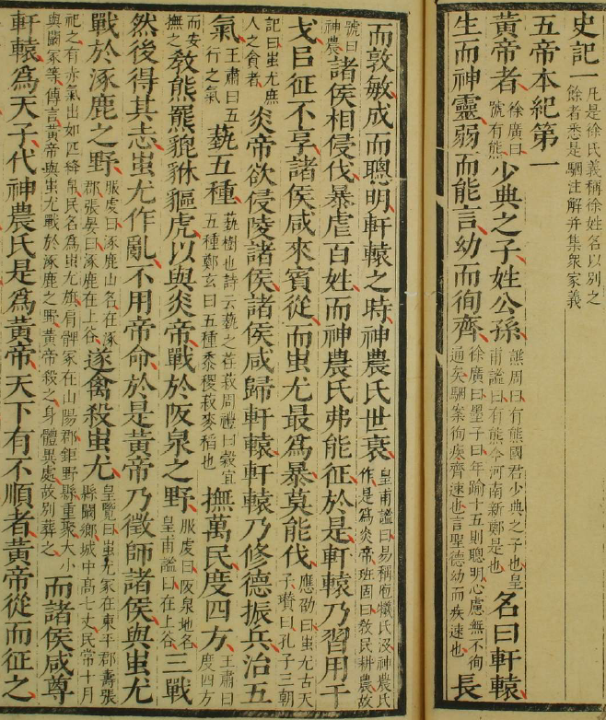 史記一凡是徐氏義稱徐姓名以別之餘者悉是駰注解并集衆家義
五帝本紀第一
黃帝者徐廣曰號有熊少典之子姓公孫譙周曰有熊國君少典之子也皇甫謐曰有熊今河南新鄭是也名曰軒轅
生而神靈弱而能言幼而徇齊徐廣曰墨子曰年踰十五則聰明心慮無不徇通矣駰案徇疾齊速也言聖德幼而疾速也長
而敦敏成而聰明軒轅之時神農氏世衰皇甫謐曰易稱庖犧氏沒神農氏作是爲炎帝班固曰敎民耕農故
號曰神農諸侯相侵伐暴虐百姓而神農氏弗能征於是軒轅乃習用干
戈以征不享諸侯咸來賓從而蚩尤最爲暴莫能伐應劭曰蚩尤古天子瓚曰孔子三朝
記曰蚩尤庶人之貪者炎帝欲侵陵諸侯諸侯咸歸軒轅軒轅乃修德振兵治五
氣王肅曰五行之氣蓺五種蓺樹也詩云蓺之荏菽周禮曰穀宜五種鄭玄曰五種黍稷菽麥稻也撫萬民度四方王肅曰度四方
而安撫之敎熊羆貔貅貙虎以與炎帝戰於阪泉之野服虔曰阪泉地名皇甫謐曰在上谷三戰
然後得其志蚩尤作亂不用帝命於是黃帝乃徵師諸侯與蚩尤
戰於涿鹿之野服虔曰涿鹿山名在涿郡張晏曰涿鹿在上谷遂禽殺蚩尤皇覽曰蚩尤冢在東平郡壽張縣闞鄉城中高七丈民常十月
祀之有赤氣出如匹絳帛民名爲蚩尤旗肩髀冢在山陽郡鉅野縣重聚大小與闞冢等傳言黃帝與蚩尤戰於涿鹿之野黃帝殺之身體異處故別葬之而諸侯咸尊
軒轅爲天子代神農氏是爲黃帝天下有不順者黃帝從而征之